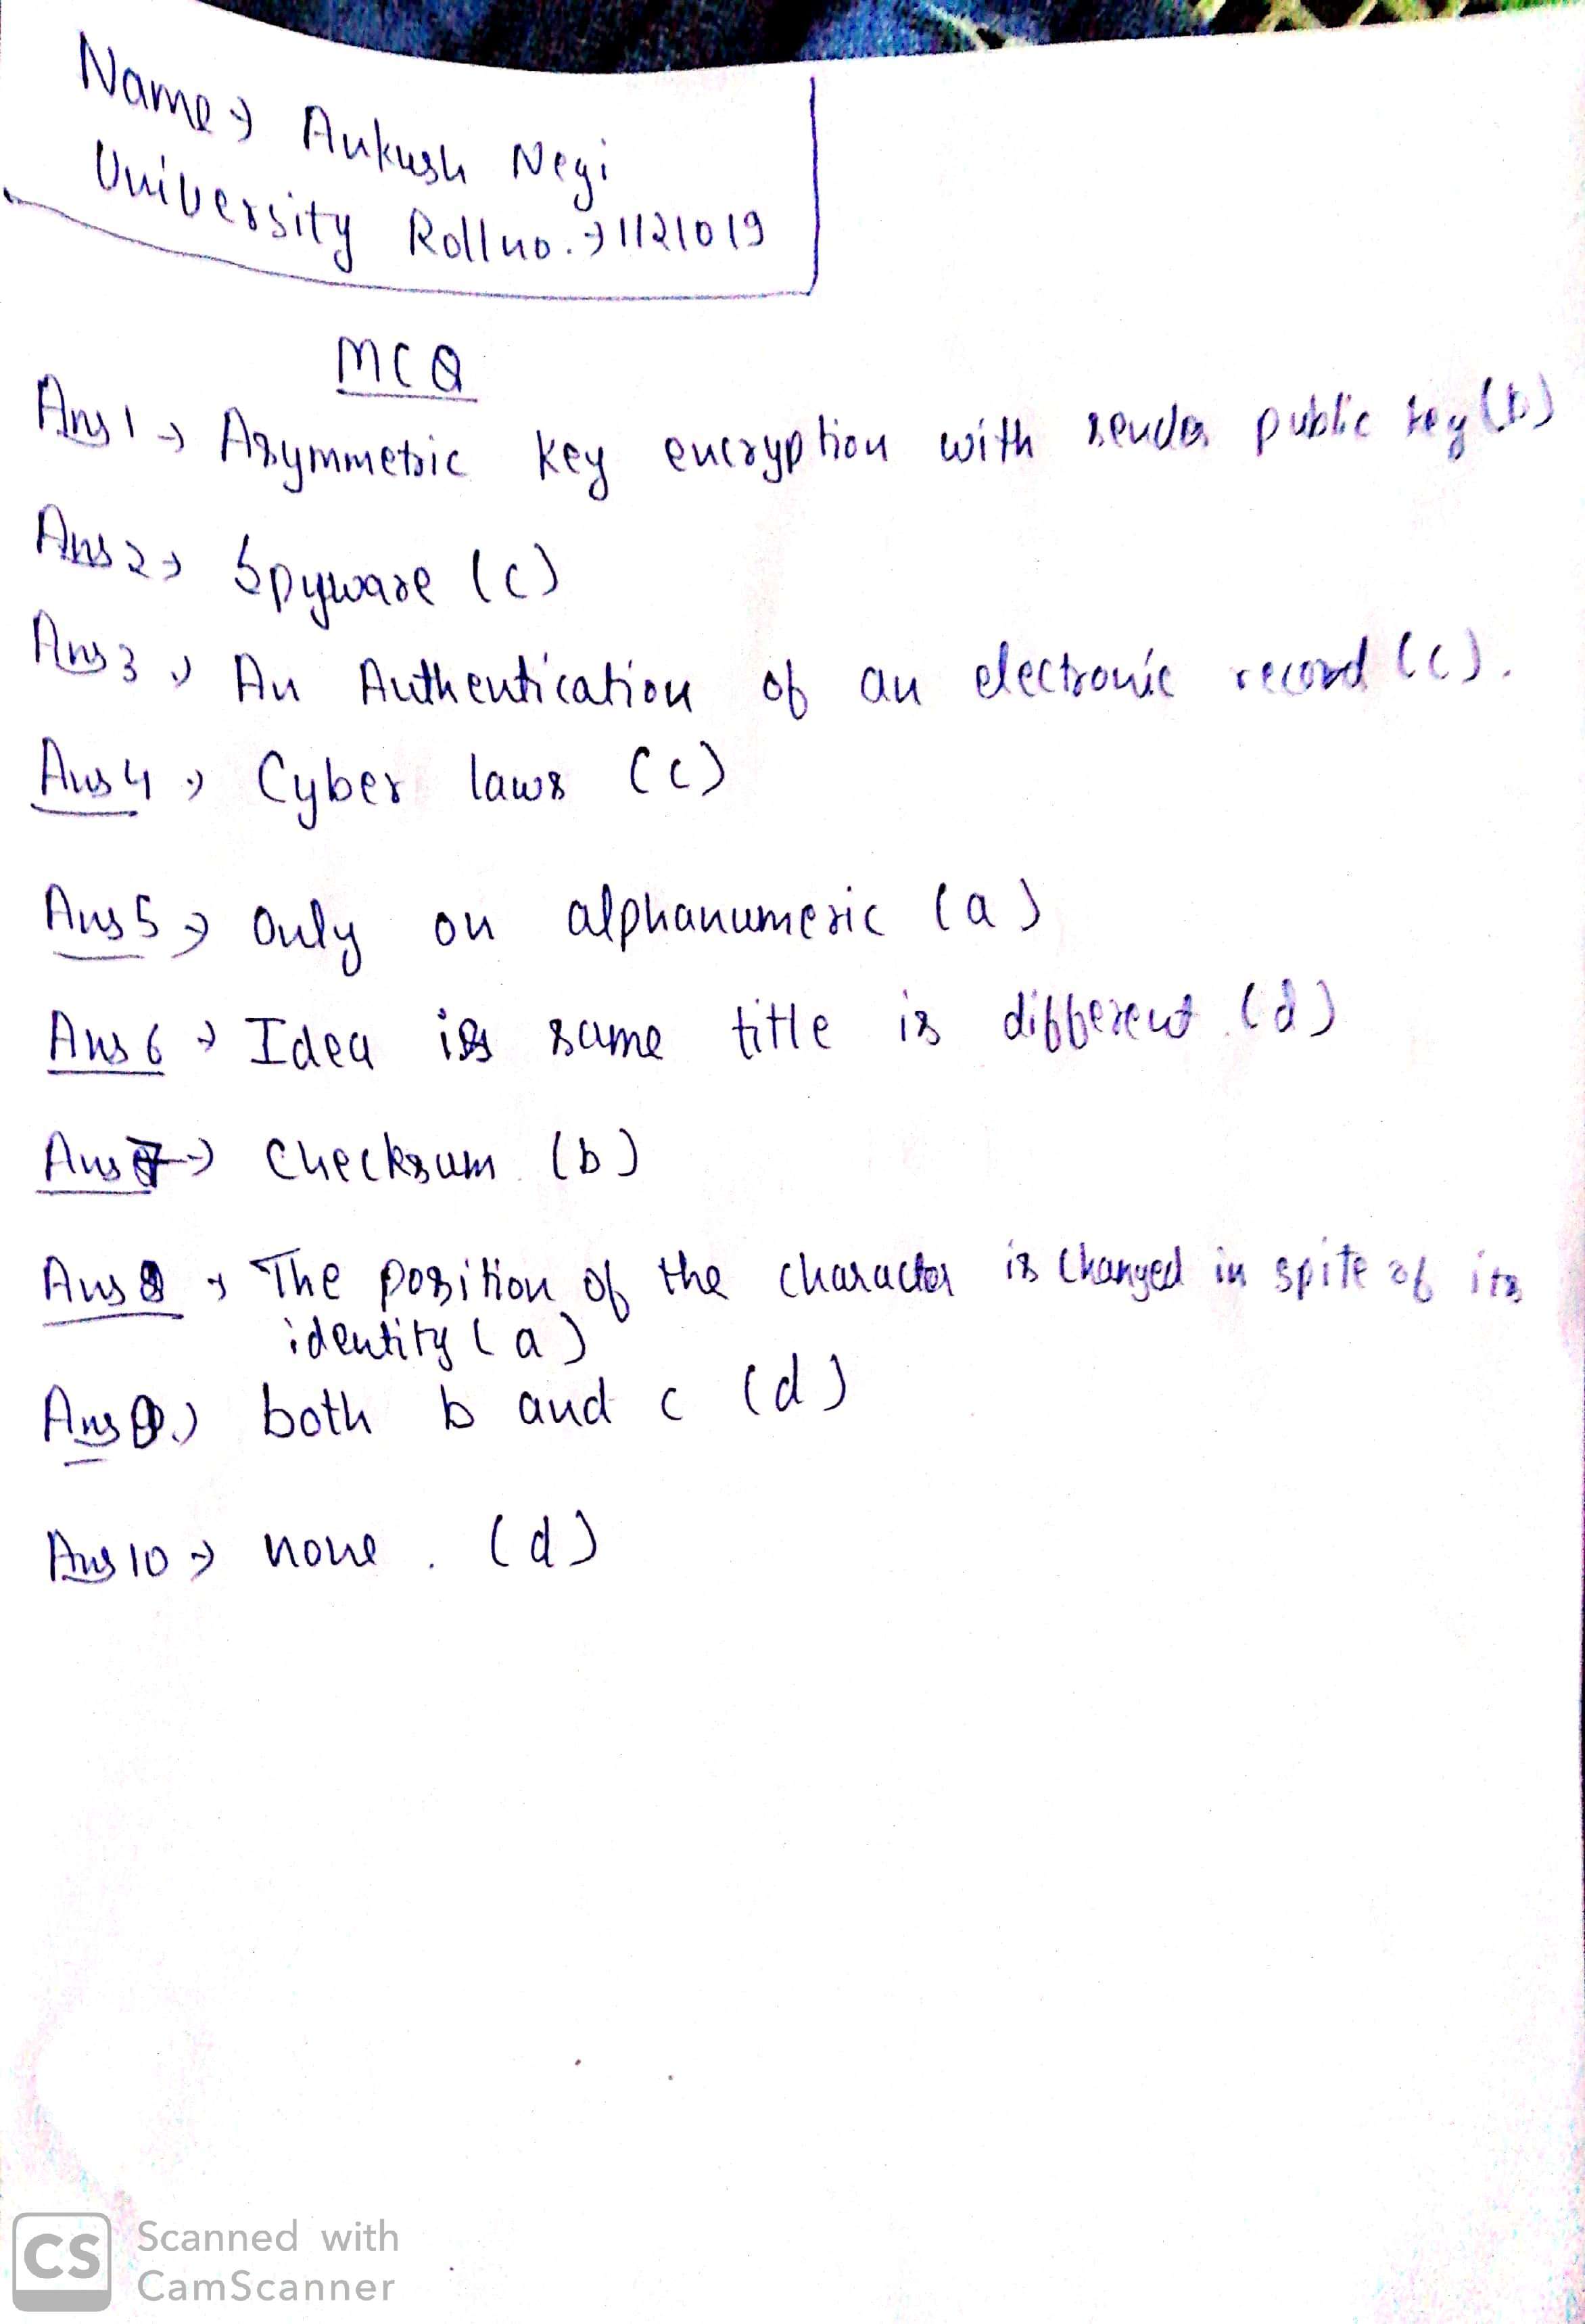 Name → Ankush Negi
University Rollno. → 1121019
MCQ
Ans 1 → Asymmetric key encryption with sender public key (b)
Ans 2 → Spyware (c)
Ans 3 → An Authentication of an electronic record (c).
Ans 4 → Cyber laws (c)
Ans 5 → Only on alphanumeric (a)
Ans 6 → Idea is same title is different (d)
Ans 7 → Checksum (b)
Ans 8 → The position of the character is changed in spite of its
identity (a)
Ans 9 → both b and c (d)
Ans 10 → none. (d)
CS
Scanned with
CamScanner